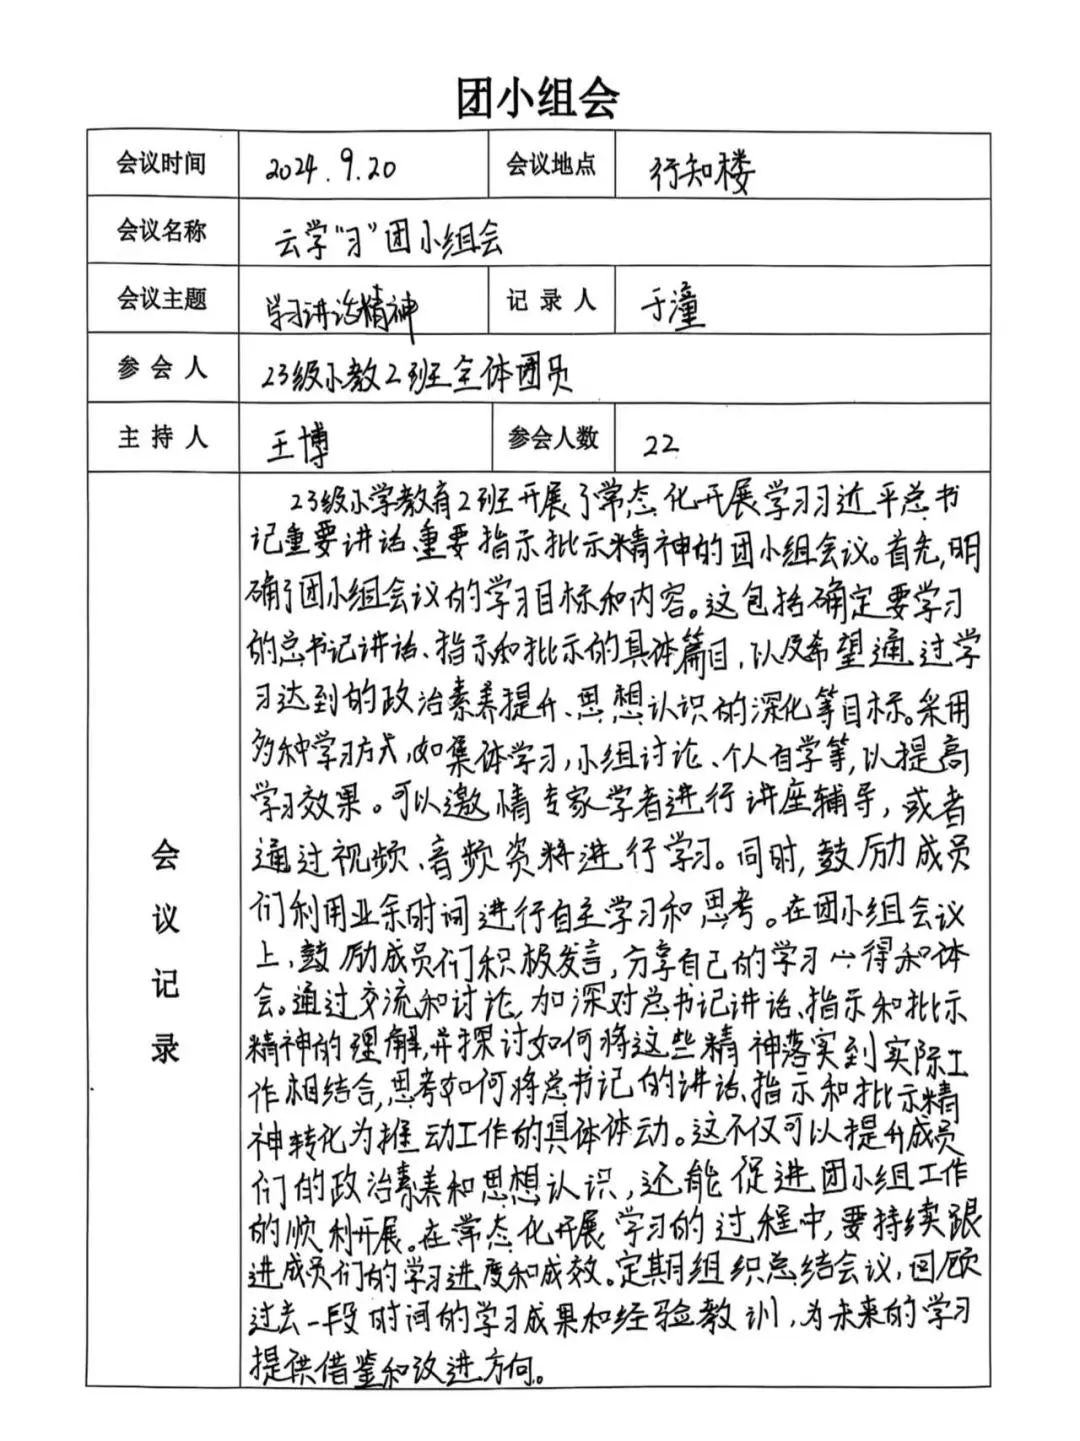 团小组会
会议时间 2024.9.20 会议地点 行知楼
会议名称 云学“习”团小组会
会议主题 学习讲话精神 记录人 于潼
参会人 23级小教2班全体团员
主持人 王博 参会人数 22
会议记录
23级小学教育2班开展了常态化开展学习习近平总书
记重要讲话、重要指示批示精神的团小组会议。首先,明
确了团小组会议的学习目标和内容。这包括确定要学习
的总书记讲话、指示和批示的具体篇目,以及希望通过学
习达到的政治素养提升、思想认识的深化等目标。采用
多种学习方式,如集体学习,小组讨论、个人自学等,以提高
学习效果。可以邀情专家学者进行讲座辅导,或者
通过视频、音频资料进行学习。同时,鼓励成员
们利用业余时间进行自主学习和思考。在团小组会议
上,鼓励成员们积极发言,分享自己的学习心得和体
会。通过交流和讨论,加深对总书记讲话、指示和批示
精神的理解,并探讨如何将这些精神落实到实际工
作相结合,思考如何将总书记的讲话、指示和批示精
神转化为推动工作的具体体动。这不仅可以提升成员
们的政治素养和思想认识,还能促进团小组工作
的顺利开展。在常态化开展学习的过程中,要持续跟
进成员们的学习进度和成效。定期组织总结会议,回顾
过去一段时间的学习成果和经验教训,为未来的学习
提供借鉴和改进方向。